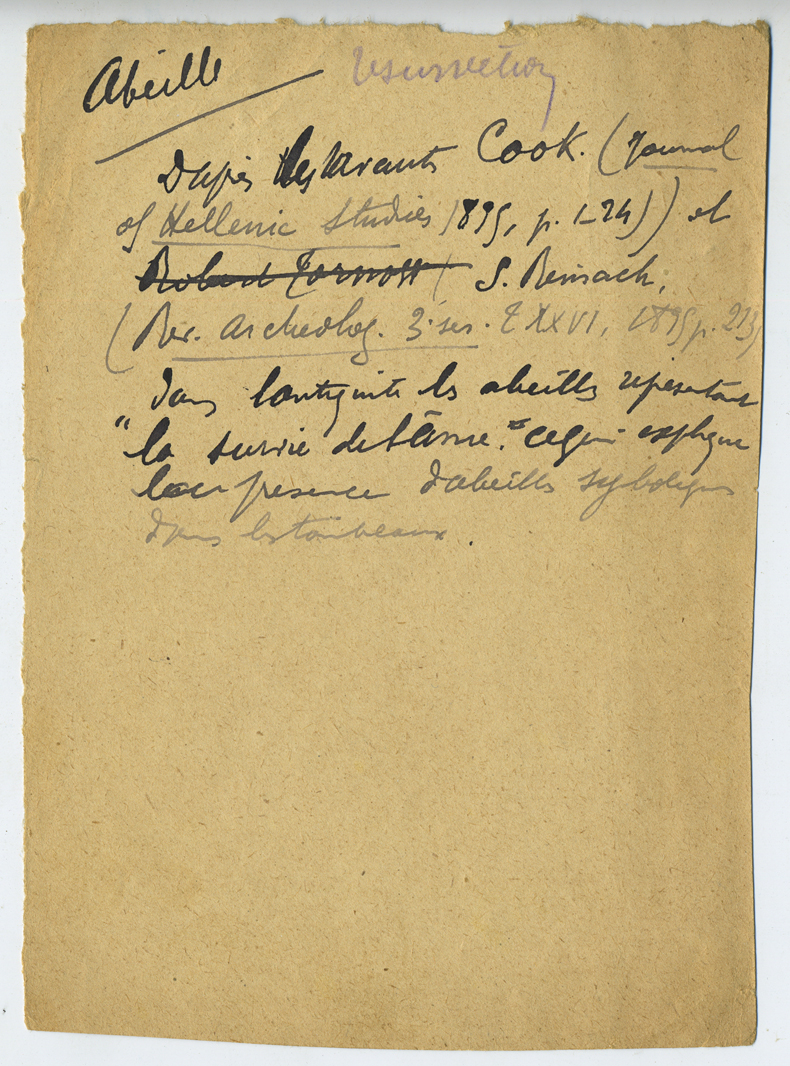 Abeille resurrection
D'après les savants Cook. (Journal
of Hellenic Studies 1895, p. 1-24)) et
S. Reinach,
(Rev. Archeolog. 3e ser. t XXVI, 1895 p. 213)
dans l'antiquité les abeilles représentent
"la survie de l'âme." ce qui explique
leur presence d'abeilles symboliques
dans les tombeaux.